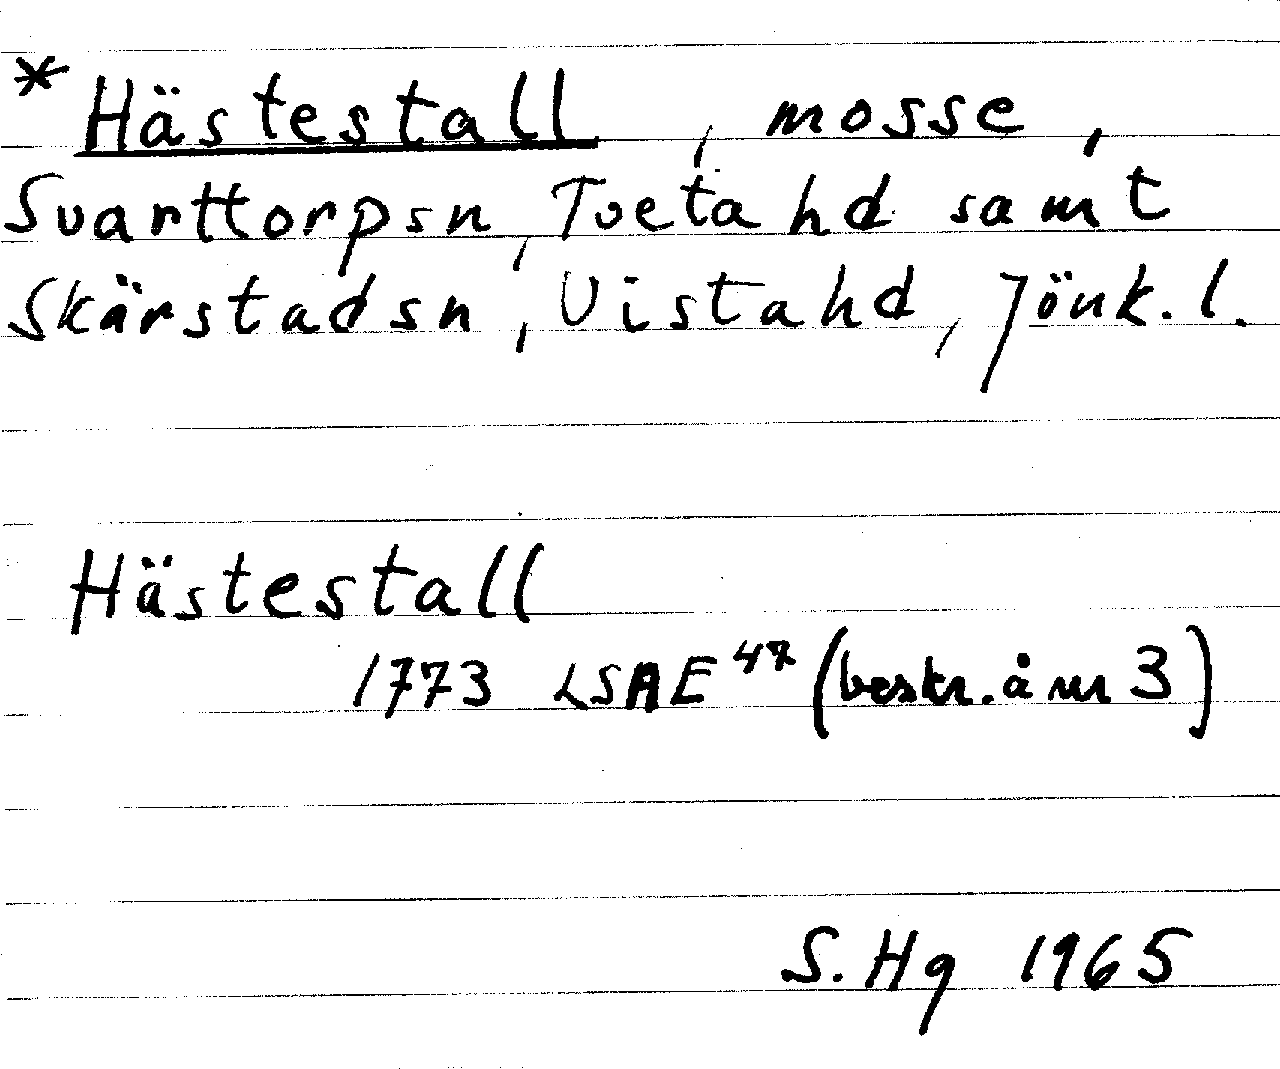 * Hästestall, mosse,
Svarttorpsn, Tvetahd samt
Skärstadsn, Vistahd, Jönk.l.
Hästestall
1773 LSA E 47 (beskr. å nr 3)
S. Hg 1965